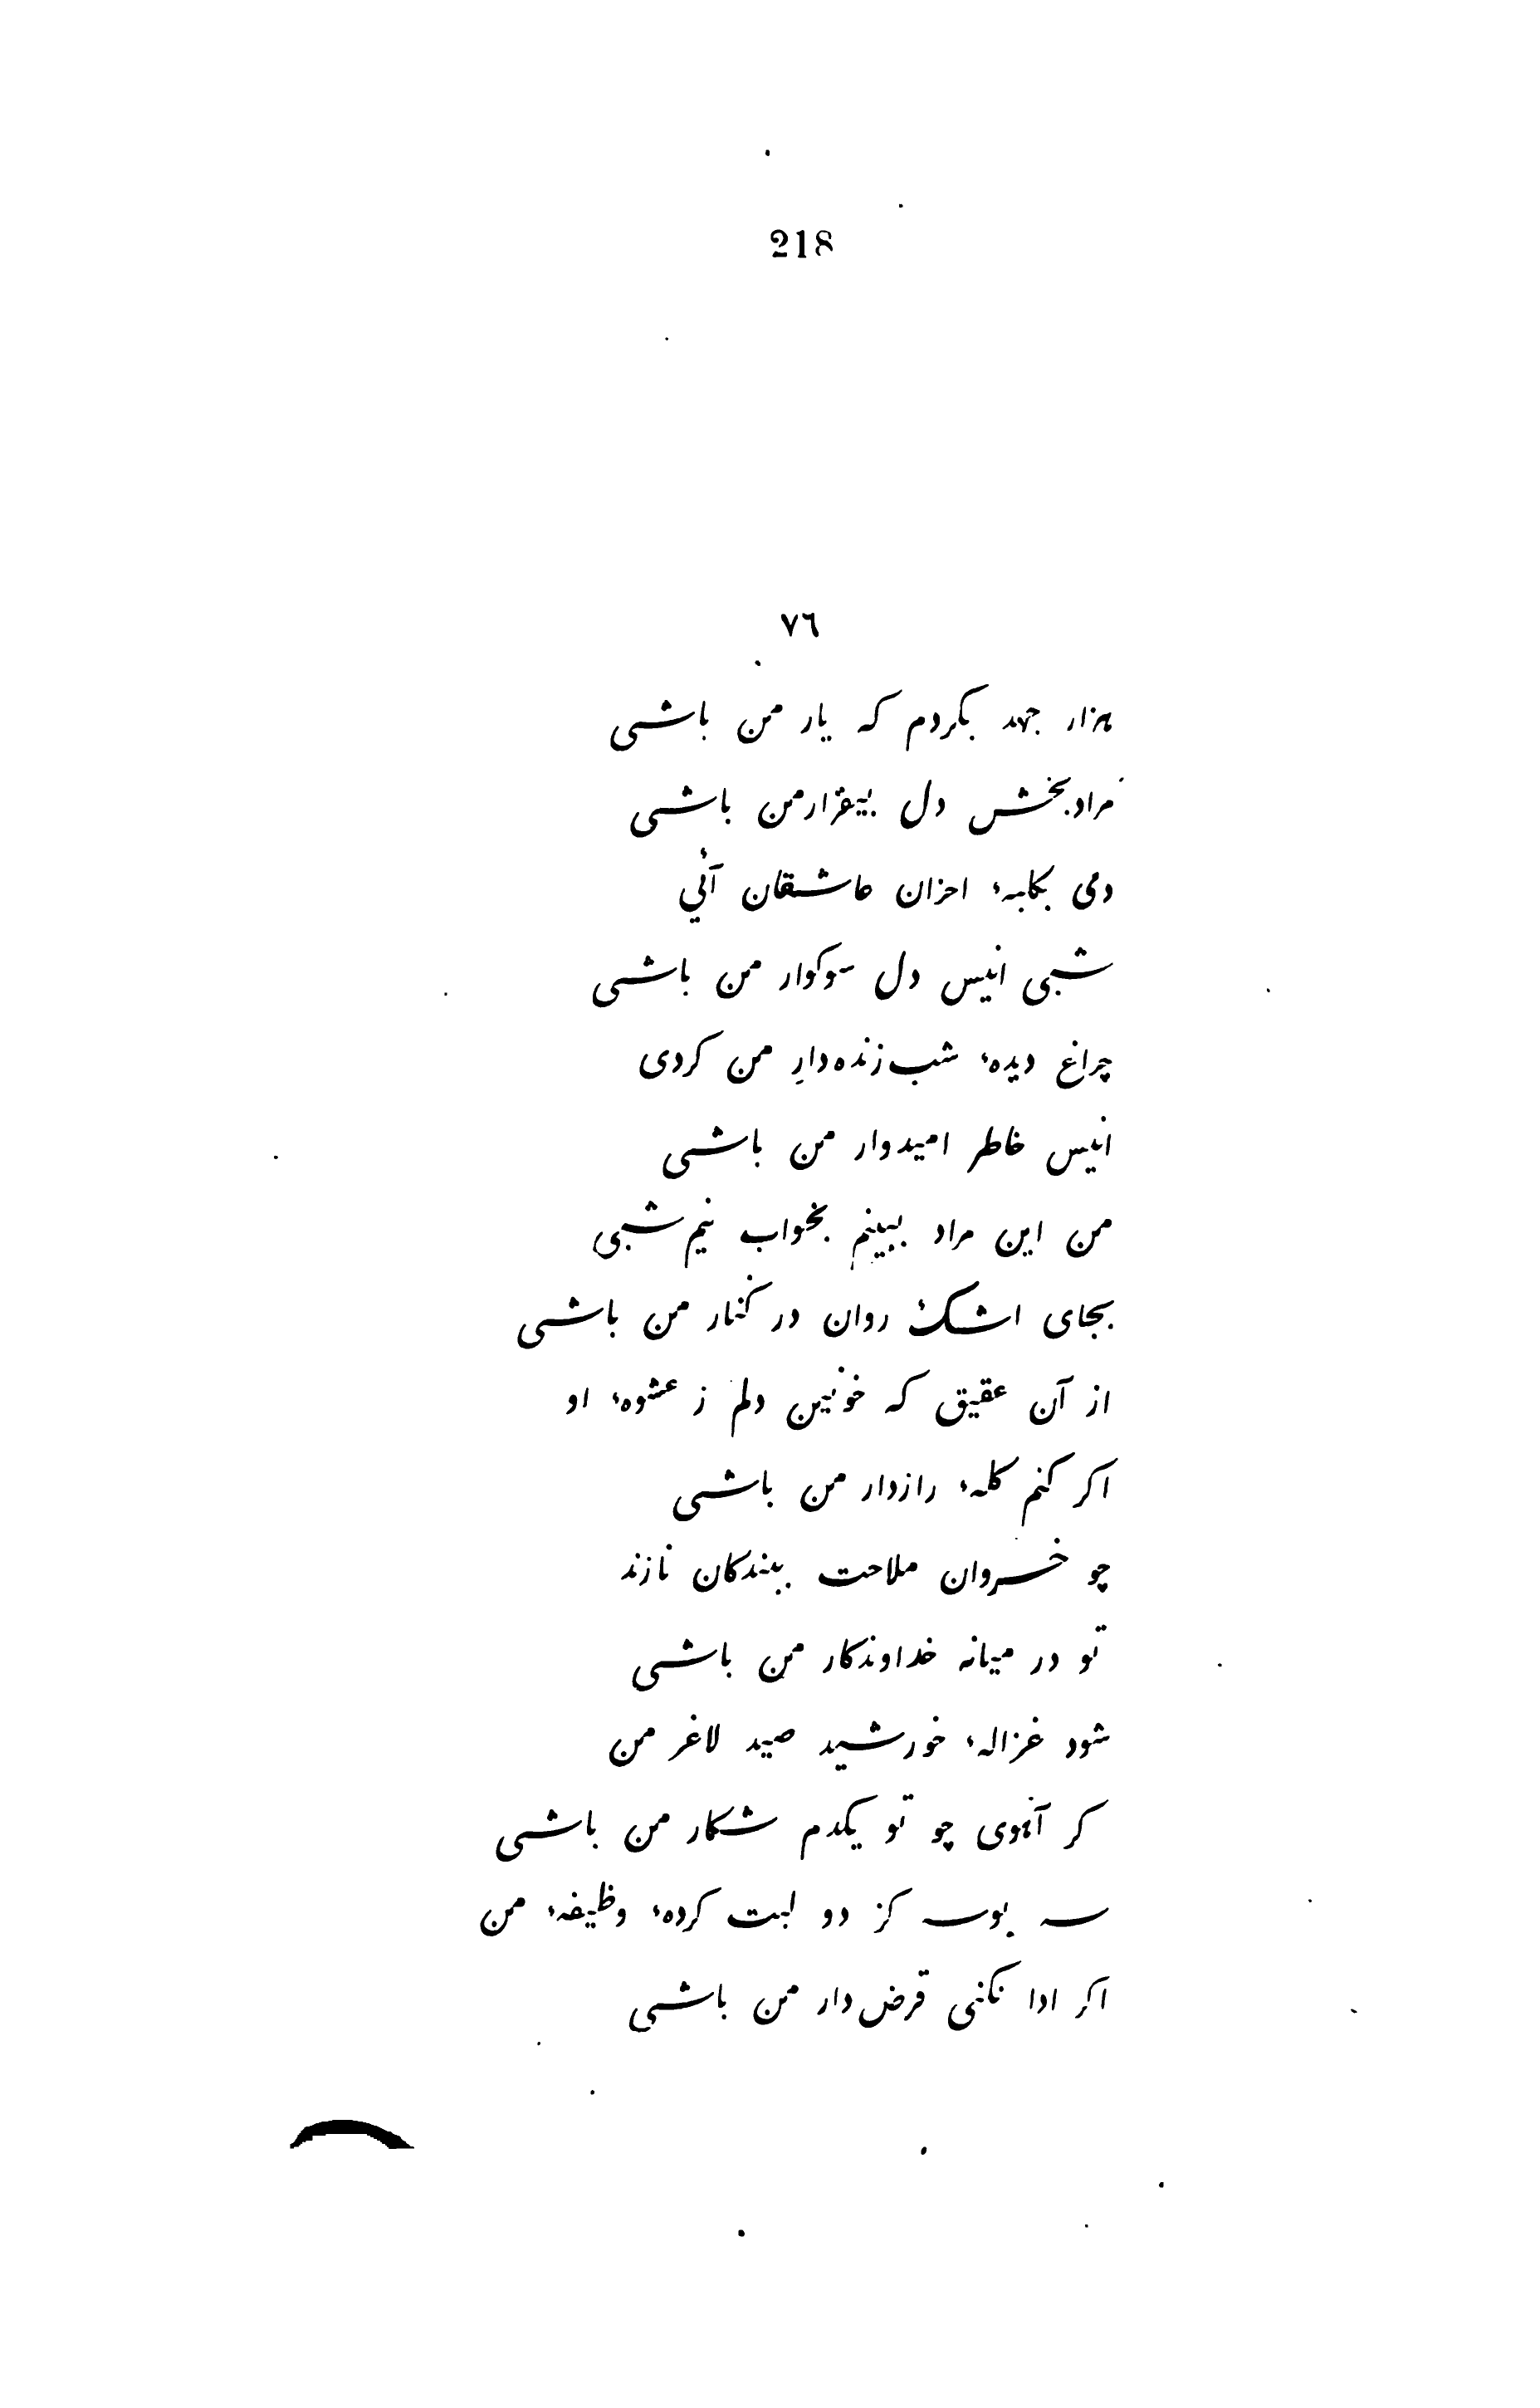 218
٧٦
هزار جهد بکردم که یار من باشی
مرادبخش دل بیقرار من باشی
دمی بکلبهٔ احزان عاشقان آئی
شبی انیس دل سوکوار من باشی
چراغ دیدهٔ شب زنده‌دارِ من کردی
انیس خاطر امیدوار من باشی
من این مراد ببینم بخواب نیم شبی
بجای اشک روان در کنار من باشی
از آن عقیق که خونین دلم ز عشوهٔ او
اکر کنم کلهٔ رازدار من باشی
چو خسروان ملاحت ببندکان نازند
تو در میانه خداوندکار من باشی
شود غزالهٔ خورشید صید لاغر من
کر آهوی چو تو یکدم شکار من باشی
سه بوسه کز دو لبت کردهٔ وظیفهٔ من
اکر ادا نکنی قرض دار من باشی